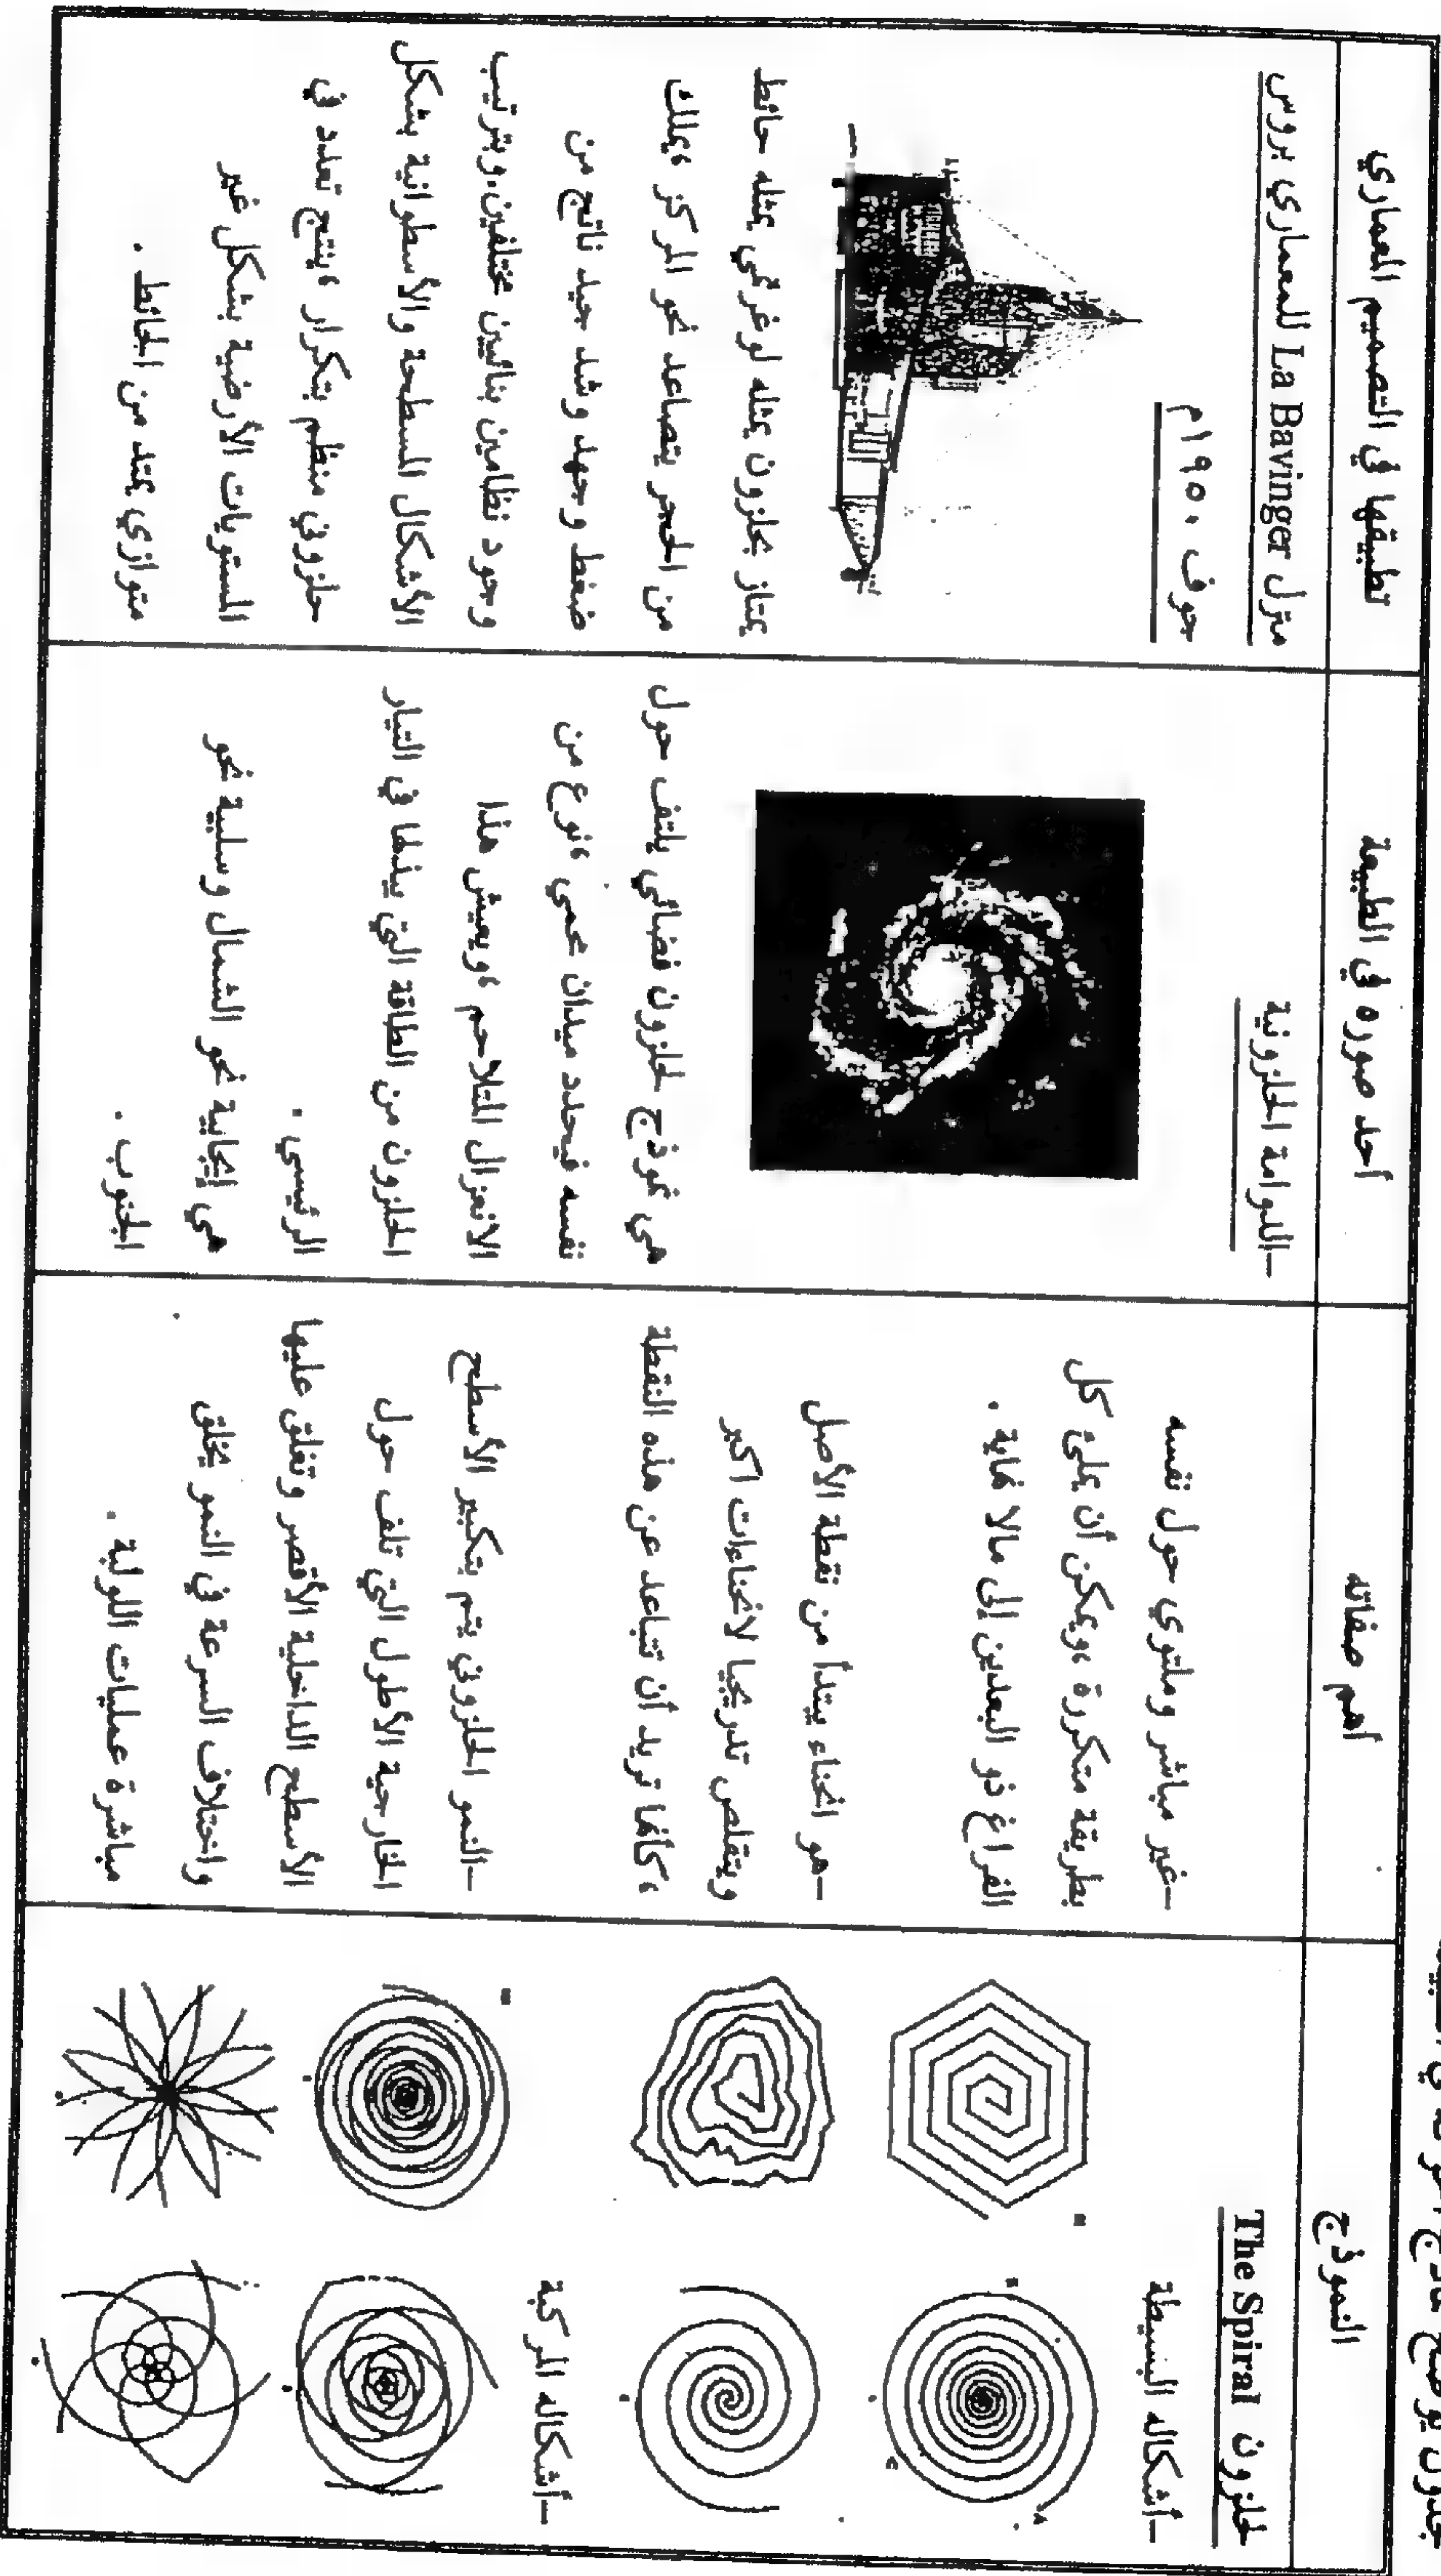 جدول يوضح نماذج
النموذج
أهم صفاته
أحد صوره في الطبيعة
تطبيقها في التصميم المعماري
لحلزون The Spiral
-أشكاله البسيطة
-أشكاله المركبة
-غير مباشر وملتوي حول نفسه
بطريقة متكررة ،ويمكن أن يملئ كل
الفراغ ذو البعدين إلى مالا نهاية .
-هو انحناء يبتدأ من نقطة الأصل
ويتقلص تدريجيا لانحناءات اكبر
،كأنها تريد أن تتباعد عن هذه النقطة
-النمو الحلزوني يتم بتكبير الأسطح
الخارجية الأطول التي تلف حول
الأسطح الداخلية الأقصر وتغلق عليها
واختلاف السرعة في النمو يخلق
مباشرة عمليات اللولبة .
-الدوامة الحلزونية
هي نموذج لحلزون فضائي يلتف حول
نفسه فيحدد ميدان محمي ،نوع من
الانعزال المتلاحم ،ويعيش هذا
الحلزون من الطاقة التي يبذلها في التيار
الرئيسي .
هي إيجابية نحو الشمال وسلبية نحو
الجنوب .
منزل La Bavinger للمعماري بروس
جوف ١٩٥٠م
يمتاز بحلزون يمثله لوغرتمي يمثله حائط
من الحجر يتصاعد نحو المركز ،يملك
ضغط وجهد وشد جيد ناتج من
وجود نظامين بنائيين مختلفين.وبترتيب
الأشكال المسطحة والأسطوانية بشكل
حلزوني منظم بتكرار ،ينتج تعدد في
المستويات الأرضية بشكل غير
متوازي يمتد من الحائط .